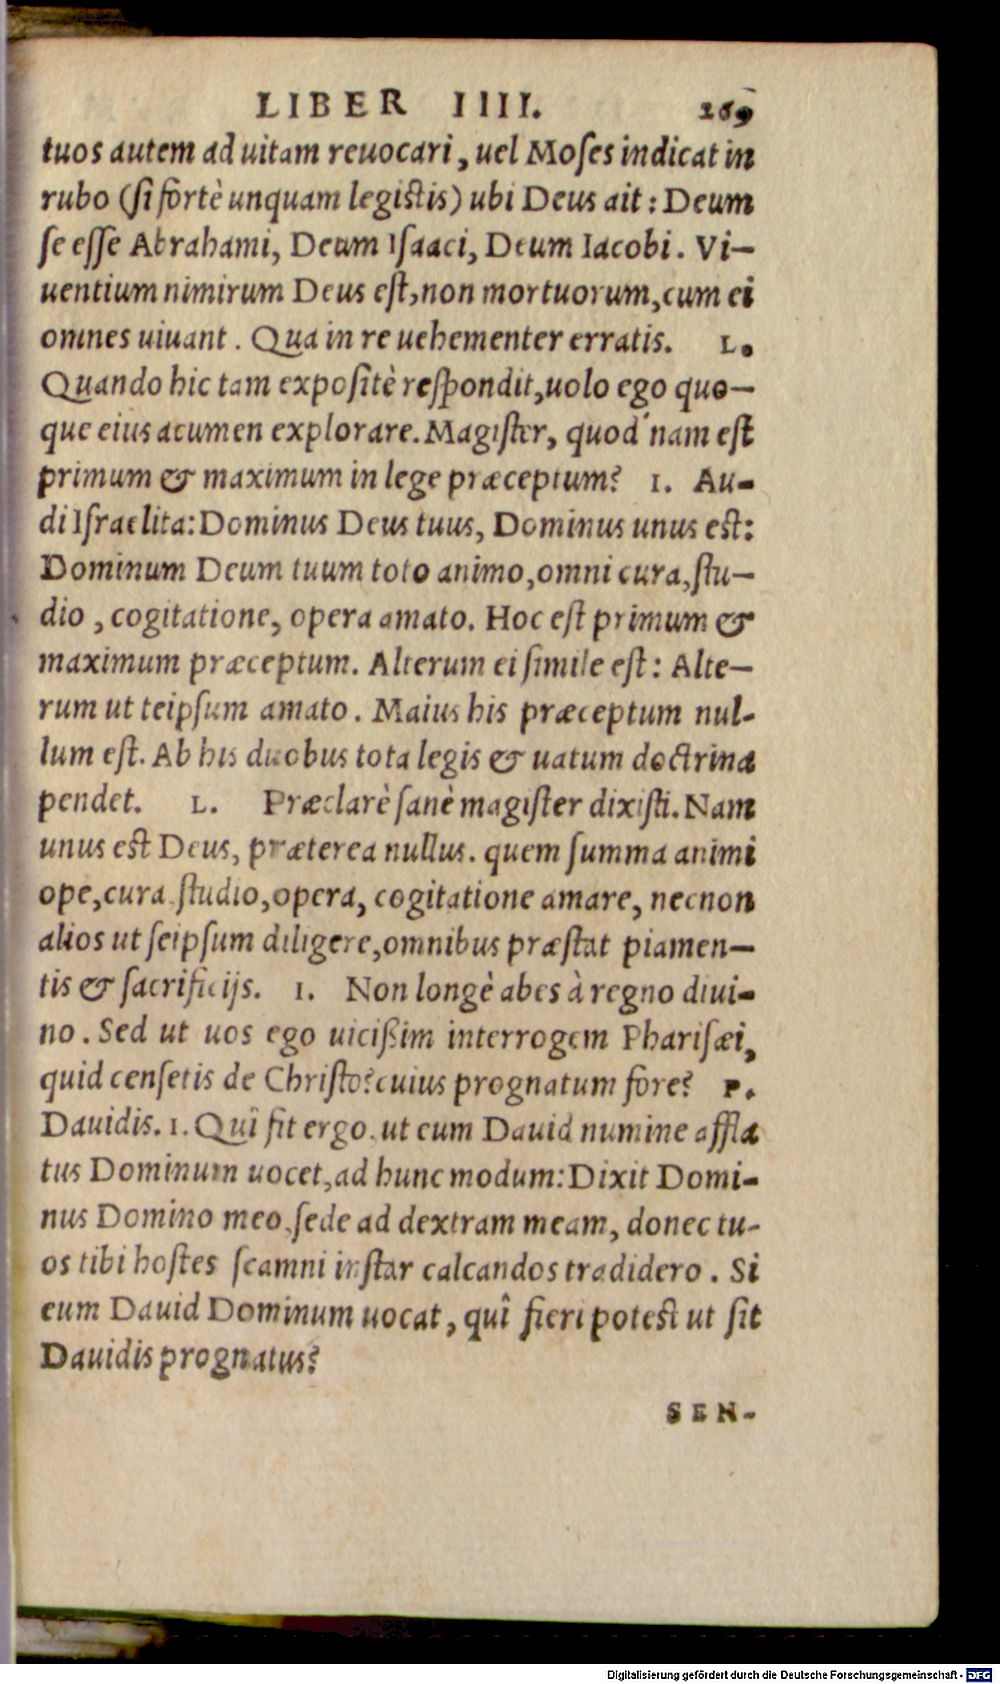 LIBER IIII. 269
tuos autem ad uitam reuocari, uel Moſes indicat in
rubo (ſi fortè unquam legiſtis) ubi Deus ait: Deum
ſe eſſe Abrahami, Deum Iſaaci, Deum Iacobi. Vi-
uentium nimirum Deus eſt, non mortuorum, cum ei
omnes uiuant. Qua in re uehementer erratis. L.
Quando hic tam expoſitè reſpondit, uolo ego quo-
que eius acumen explorare. Magiſter, quod nam eſt
primum & maximum in lege præceptum? I. Au-
di Iſraelita: Dominus Deus tuus, Dominus unus eſt:
Dominum Deum tuum toto animo, omni cura, ſtu-
dio, cogitatione, opera amato. Hoc eſt primum &
maximum præceptum. Alterum ei ſimile eſt: Alte-
rum ut teipſum amato. Maius his præceptum nul-
lum eſt. Ab his duobus tota legis & uatum doctrina
pendet. L. Præclarè ſanè magiſter dixiſti. Nam
unus eſt Deus, præterea nullus. quem ſumma animi
ope, cura, ſtudio, opera, cogitatione amare, necnon
alios ut ſeipſum diligere, omnibus præſtat piamen-
tis & ſacrificijs. I. Non longè abes à regno diui-
no. Sed ut uos ego uicißim interrogem Phariſæi,
quid cenſetis de Chriſto? cuius prognatum fore? P.
Dauidis. I. Quî fit ergo, ut eum Dauid numine affla
tus Dominum uocet, ad hunc modum: Dixit Domi-
nus Domino meo, ſede ad dextram meam, donec tu-
os tibi hoſtes ſcamni inſtar calcandos tradidero. Si
eum Dauid Dominum uocat, quî fieri poteſt ut ſit
Dauidis prognatus?
SEN-
Digitalisierung gefördert durch die Deutsche Forschungsgemeinschaft - DFG